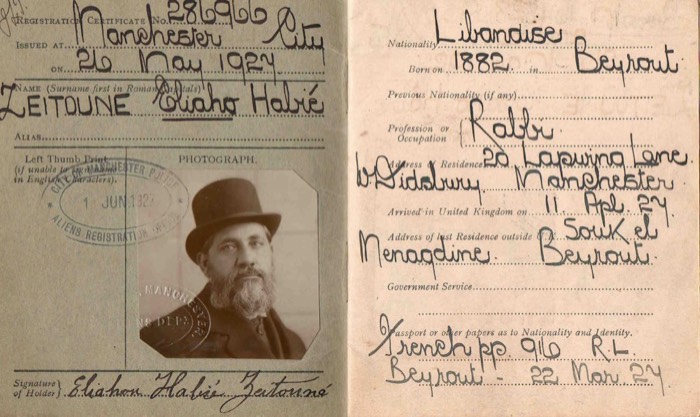 REGISTRATION CERTIFICATE No. 286966
ISSUED AT Manchester City
ON 26 May 1927
NAME (Surname first in Roman Capitals)
ZEITOUNE Eliaho Habié
ALIAS
Left Thumb Print
(if unable to sign name
in English Characters).
PHOTOGRAPH.
CITY OF MANCHESTER POLICE
1 JUN 1927
ALIENS REGISTRATION
MANCHESTER
Signature
of Holder
Eliahou Habié Zeitouné
Nationality Libandise
Born on 1882 in Beyrout
Previous Nationality (if any)
Profession or
Occupation
Rabbi
Address of Residence 20 Lapwing Lane
W Didsbury Manchester
Arrived in United Kingdom on 11 Apl. 27
Address of last Residence outside U.K. Souk el
Menagdine. Beyrout.
Government Service
Passport or other papers as to Nationality and Identity.
French pp. 96 R.L.
Beyrout - 22 Mar. 27